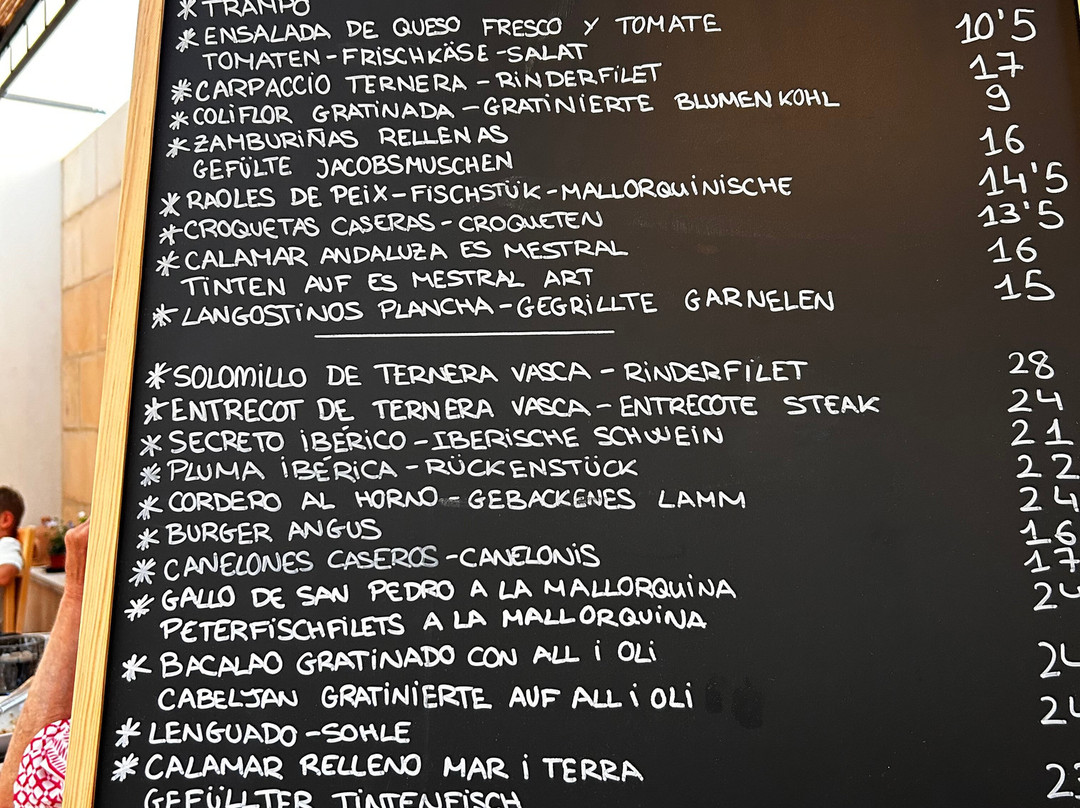 * TRAMPO
* ENSALADA DE QUESO FRESCO Y TOMATE 10'5
TOMATEN-FRISCHKÄSE-SALAT
* CARPACCIO TERNERA - RINDERFILET 17
* COLIFLOR GRATINADA - GRATINIERTE BLUMENKOHL 9
* ZAMBURIÑAS RELLENAS 16
GEFÜLTE JACOBSMUSCHEN
* RAOLES DE PEIX-FISCHSTÜK-MALLORQUINISCHE 14'5
* CROQUETAS CASERAS - CROQUETEN 13'5
* CALAMAR ANDALUZA ES MESTRAL 16
TINTEN AUF ES MESTRAL ART
* LANGOSTINOS PLANCHA-GEGRILLTE GARNELEN 15
* SOLOMILLO DE TERNERA VASCA - RINDERFILET 28
* ENTRECOT DE TERNERA VASCA - ENTRECOTE STEAK 24
* SECRETO IBÉRICO - IBERISCHE SCHWEIN 21
* PLUMA IBÉRICA - RÜCKENSTÜCK 22
* CORDERO AL HORNO - GEBACKENES LAMM 24
* BURGER ANGUS 16
* CANELONES CASEROS - CANELONIS 17
* GALLO DE SAN PEDRO A LA MALLORQUINA 24
PETERFISCHFILETS A LA MALLORQUINA
* BACALAO GRATINADO CON ALL i OLi 24
CABELJAN GRATINIERTE AUF ALL i OLi
* LENGUADO - SOHLE 24
* CALAMAR RELLENO MAR i TERRA
GEFÜLLTER TINTENFISCH